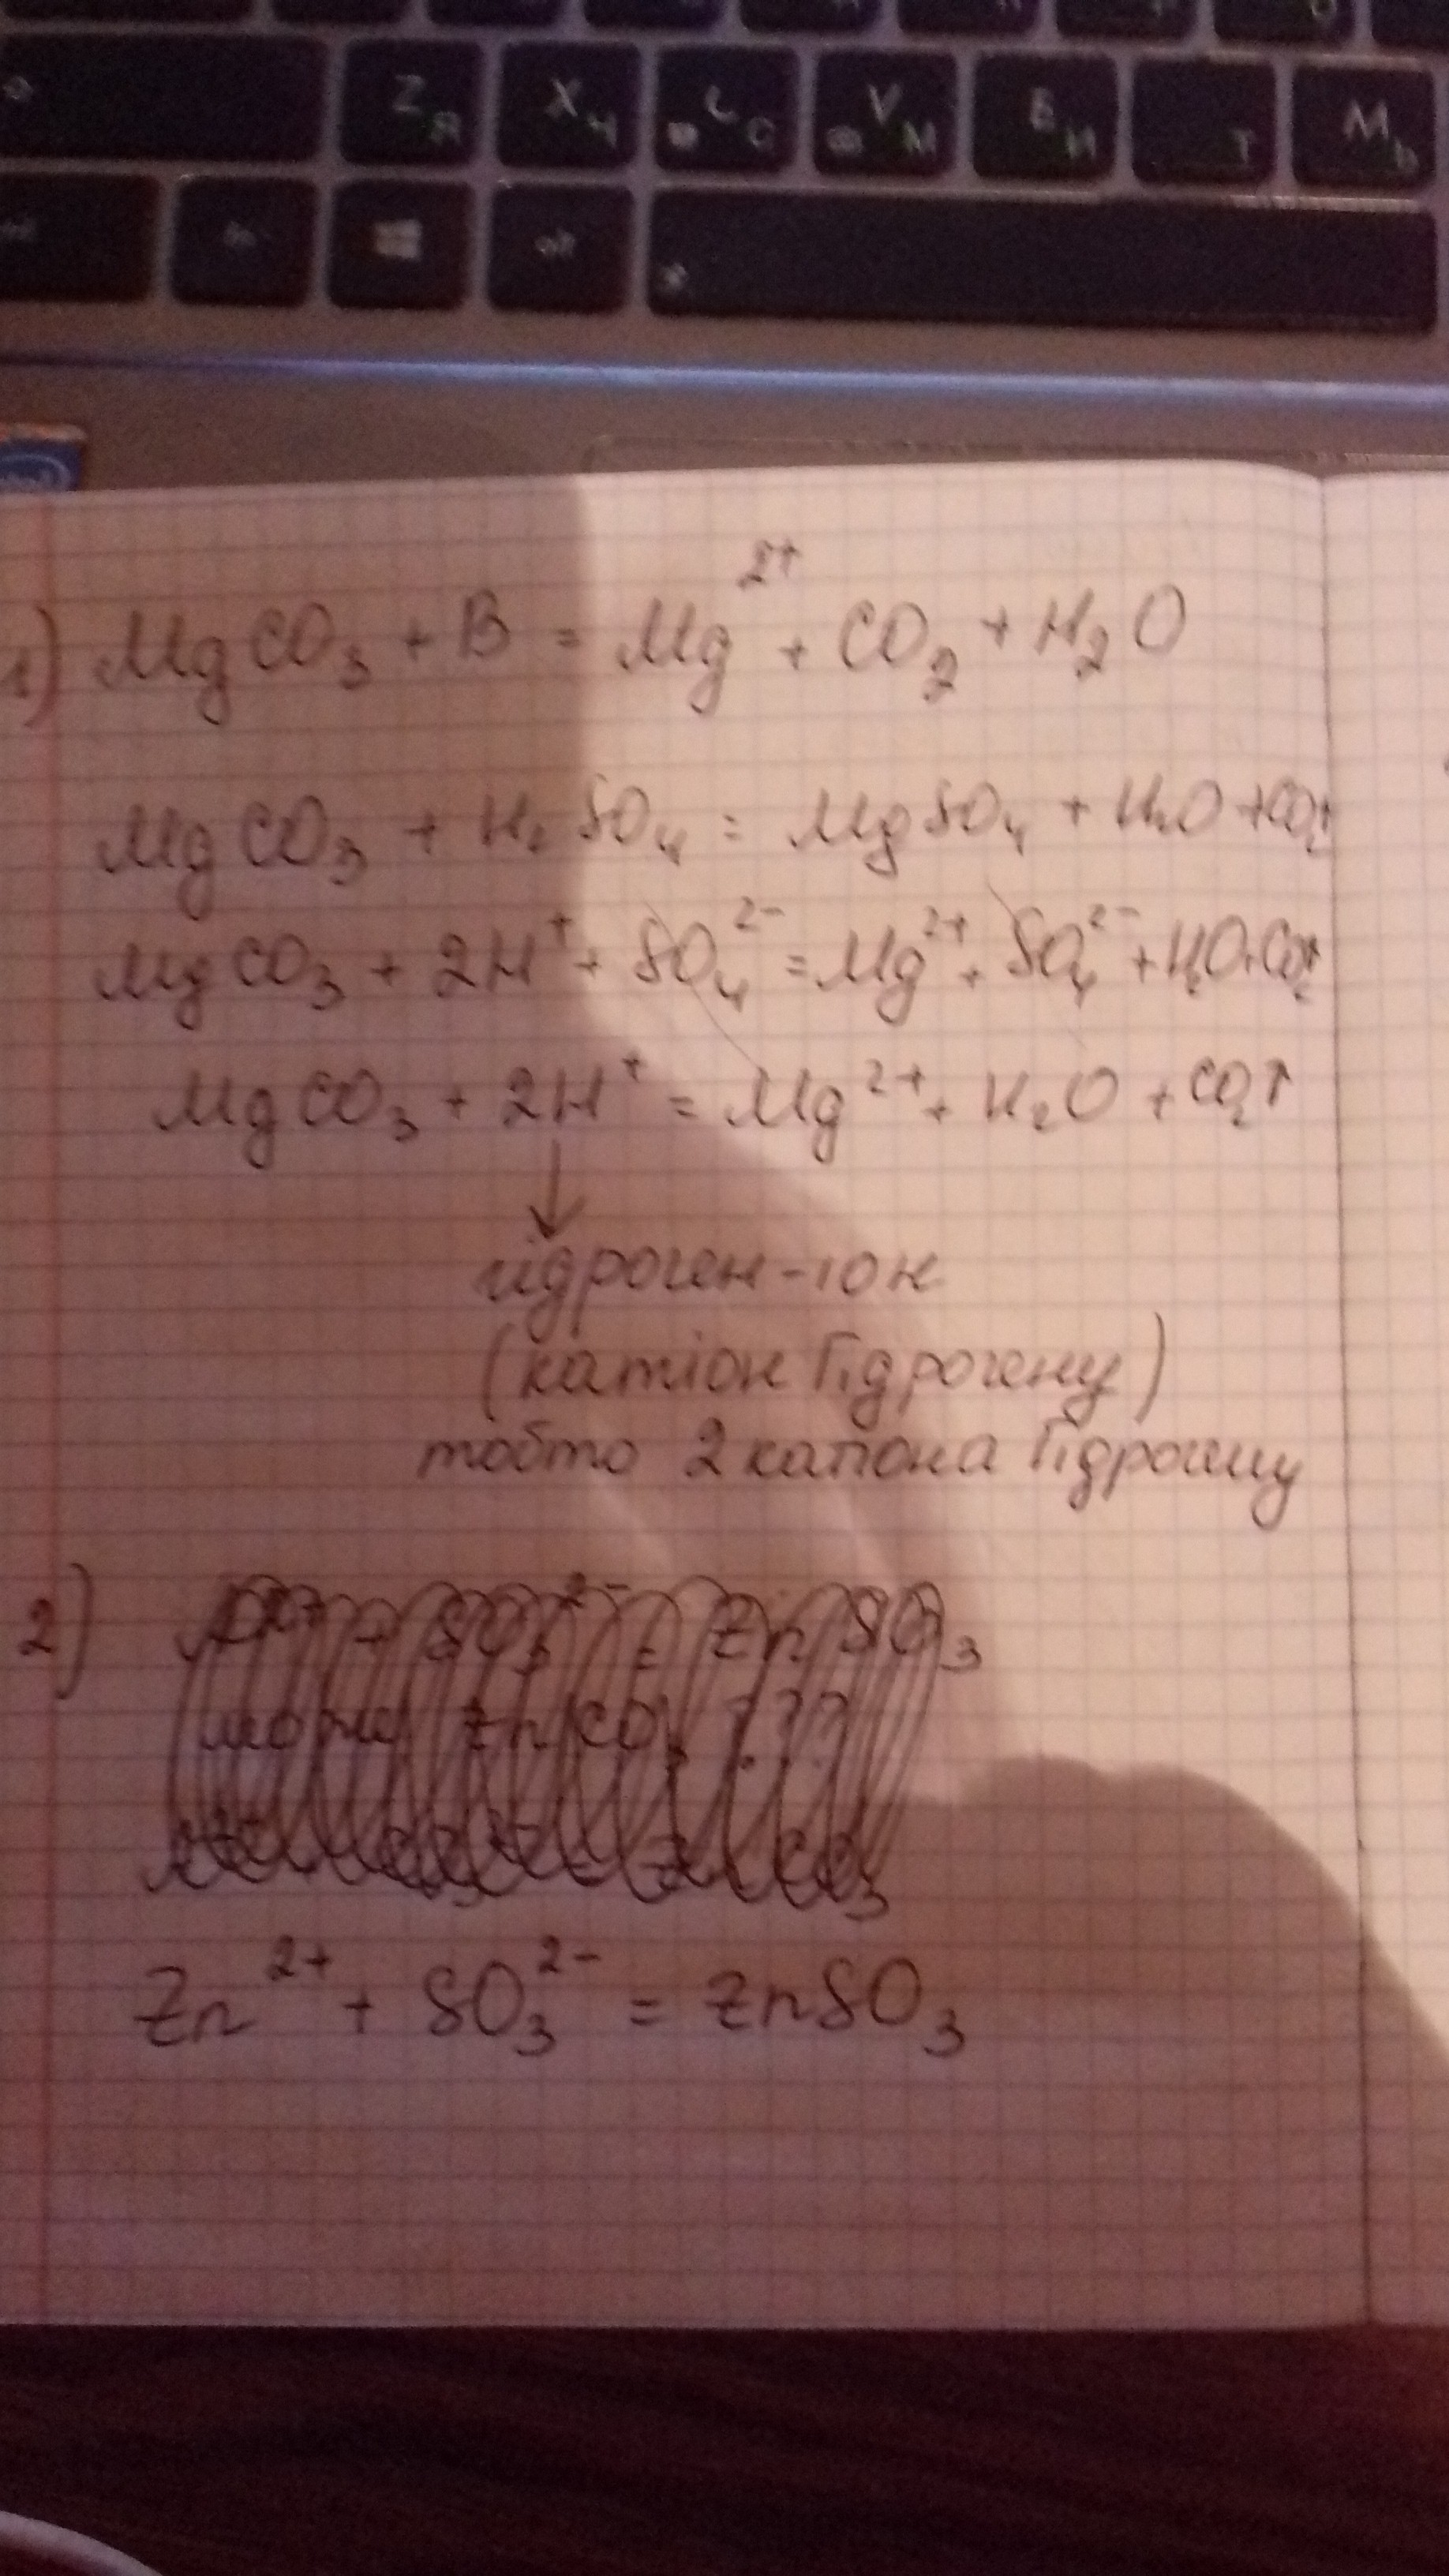 Z Я X Ч C С V М Б И Т М Ь
fn alt
intel
1) MgCO₃ + B = Mg²⁺ + CO₂ + H₂O
MgCO₃ + H₂SO₄ = MgSO₄ + H₂O + CO₂↑
MgCO₃ + 2H⁺ + SO₄²⁻ = Mg²⁺ + SO₄²⁻ + H₂O + CO₂↑
MgCO₃ + 2H⁺ = Mg²⁺ + H₂O + CO₂↑
↓
гідроген-іон
(катіон Гідрогену)
тобто 2 катіона Гідрогену
2) SO₃²⁻ = ZnSO₃
може ZnCO₃ ???
= ZnCO₃
Zn²⁺ + SO₃²⁻ = ZnSO₃